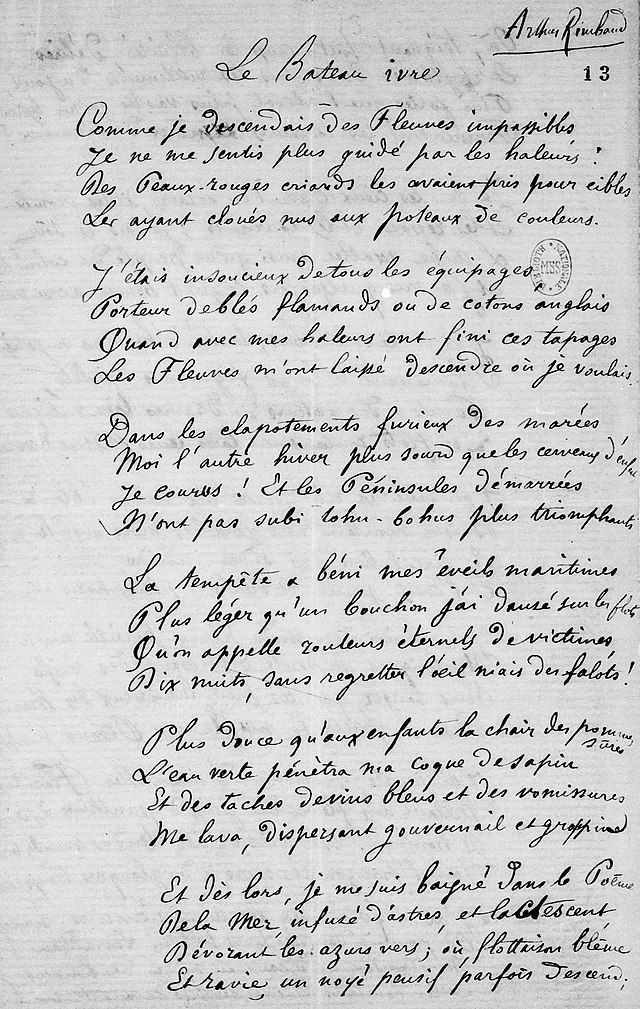 Arthur Rimbaud
13
Le Bateau ivre
Comme je descendais des Fleuves impassibles
Je ne me sentis plus guidé par les haleurs :
Des Peaux-rouges criards les avaient pris pour cibles
Les ayant cloués nus aux poteaux de couleurs.
J'étais insoucieux de tous les équipages
Porteur de blés flamands ou de cotons anglais
Quand avec mes haleurs ont fini ces tapages
Les Fleuves m'ont laissé descendre où je voulais.
Dans les clapotements furieux des marées
Moi l'autre hiver plus sourd que les cerveaux d'enfants
Je courus ! Et les Péninsules démarrées
N'ont pas subi tohu-bohus plus triomphants
La tempête a béni mes éveils maritimes
Plus léger qu'un bouchon j'ai dansé sur les flots
Qu'on appelle rouleurs éternels de victimes
Dix nuits, sans regretter l'œil niais des falots !
Plus douce qu'aux enfants la chair des pommes sûres
L'eau verte pénétra ma coque de sapin
Et des taches de vins bleus et des vomissures
Me lava, dispersant gouvernail et grappin
Et dès lors, je me suis baigné dans le Poème
De la Mer, infusé d'astres, et lactescent
Dévorant les azurs verts ; où, flottaison blême
Et ravie, un noyé pensif parfois descend ;